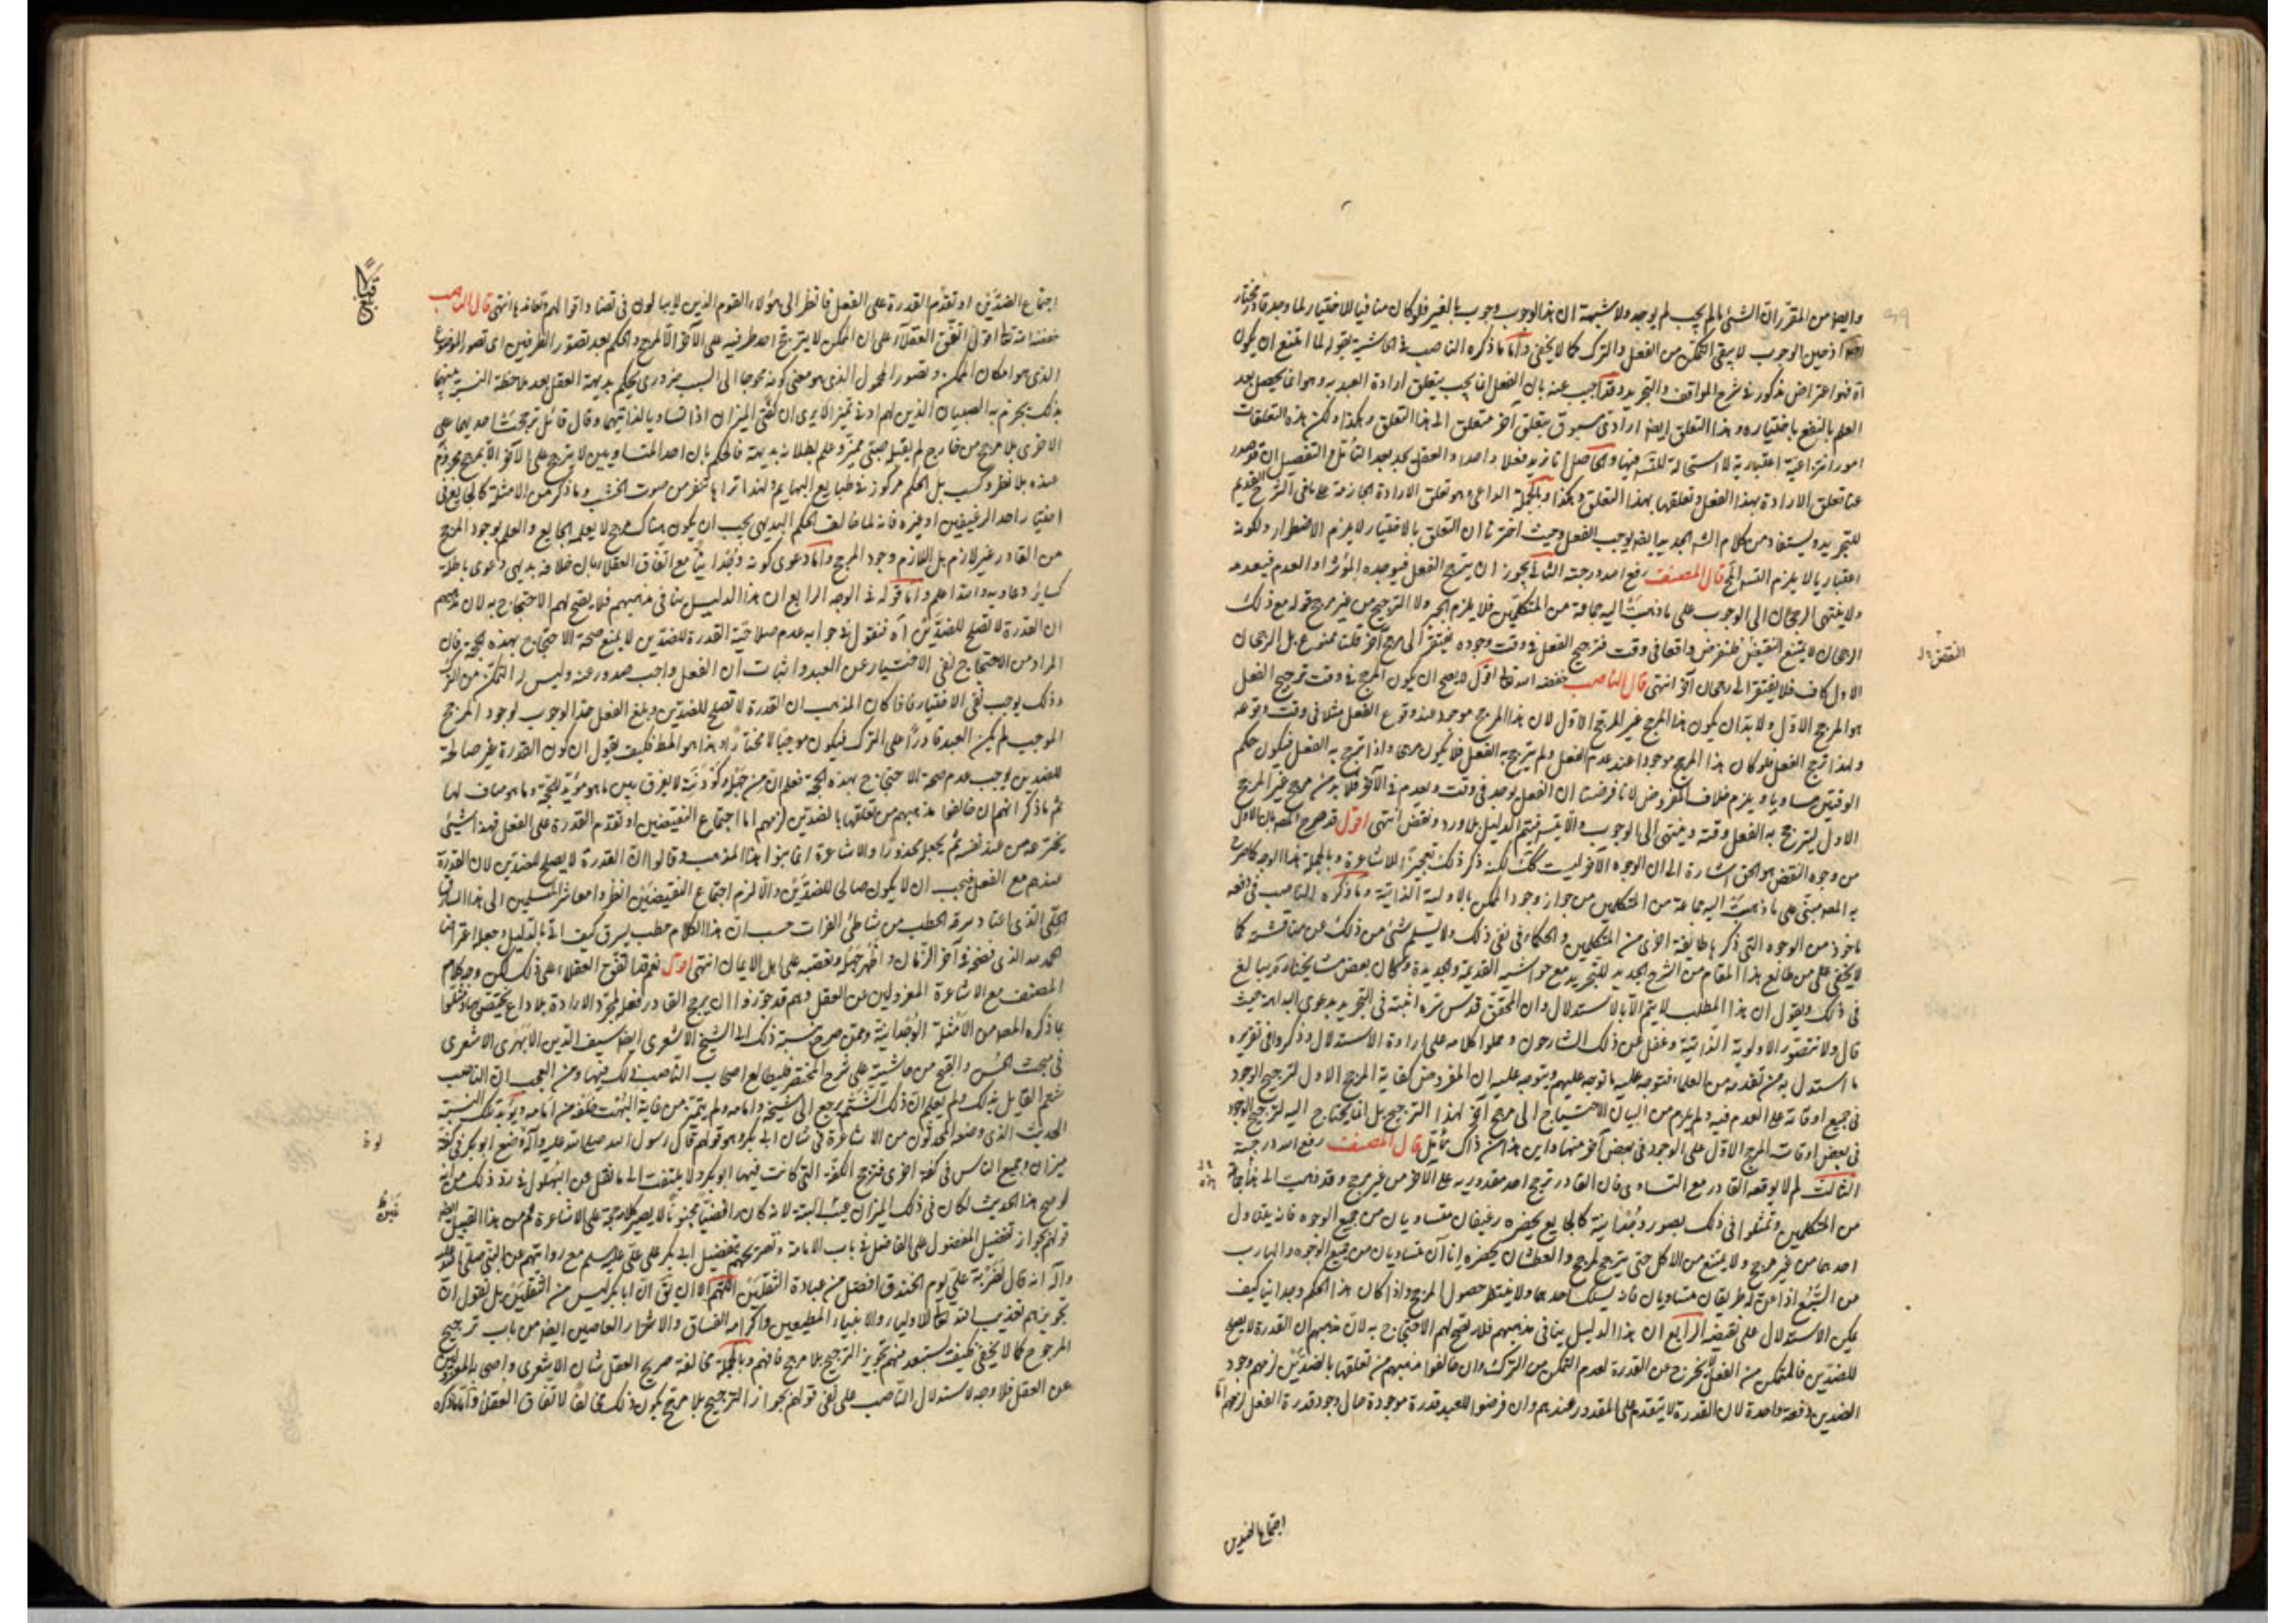 وايضا من المقرر ان الشئ ما لم يجب لم يوجد ولا شبهة ان هذا الوجوب وجوب بالغير فلو كان منافيا للاختيار لما وجد قادر مختار
اذ حين الوجوب لا يبقى التمكن من الفعل والترك كما لا يخفى واما ما ذكره الناصب في الحاشية بقوله لما امتنع ان يكون
آه فهو اعتراض مذكور في شرح المواقف والتجريد وقد اجيب عنه بان الفعل انما يجب بتعلق ارادة العبد به وهو انما يحصل بعد
العلم بالنفع باختياره وهذا التعلق ايضا ارادى مسبوق بتعلق آخر متعلق الى هذا التعلق وهكذا ولكن هذه التعلقات
امور انتزاعية اعتبارية لا استحالة للتسلسل فيها والحاصل انا نريد فعلا واحدا والعقل يجد بعد التأمل والتفصيل ان قد صدر
عنا تعلق الارادة بهذا الفعل وتعلقها بهذا التعلق وهكذا وبالجملة الداعى هو تعلق الارادة الجازمة على ما فى الشرح القديم
للتجريد ويستفاد من كلام الشرح الجديد ايضا يوجب الفعل وحيث اخترنا ان التعلق بالاختيار لا يلزم الاضطرار ولكونه
اعتباريا لا يلزم التسلسل المح قال المصنف رفع الله درجته الثانى يجوز ان يترجح الفعل فيوجده المؤثر او العدم فيعدمه
ولا ينتهى الرجحان الى الوجوب على ما ذهبت اليه جماعة من المتكلمين فلا يلزم الجبر ولا الترجيح من غير مرجح قوله مع ذلك
الرجحان لا يمتنع النقيض فلنفرض واقعا فى وقت فترجيح الفعل فى وقت وجوده يفتقر الى مرجح آخر قلنا ممنوع بل الرجحان
الاول كاف فلا يفتقر الى رجحان آخر انتهى قال الناصب خفضه الله تعالى اقول لا يصح ان يكون المرجح فى وقت ترجيح الفعل
هو المرجح الاول ولا بد ان يكون هذا المرجح غير المرجح الاول لان هذا المرجح موجود عند وقوع الفعل مثلا فى وقت وقوعه
ولهذا ترجح الفعل فلو كان هذا المرجح موجودا عند عدم الفعل ولم يترجح به الفعل فلا يكون مرجحا واذا ترجح به الفعل فيكون حكم
الوقتين مساويا ويلزم خلاف المفروض لانا فرضنا ان الفعل يوجد فى وقت ويعدم فى الآخر فلا بد من مرجح غير المرجح
الاول ليترجح به الفعل وقته وينتهى الى الوجوب والا يتسلسل فيتم الدليل بلا ورود نقض انتهى اقول قد صرح المصنف بان الاول
من وجوه النقض هو الحق اشارة الى ان الوجوه الاخر ليست كذلك لكنه ذكر ذلك تعجيزا للاشاعرة وبالجملة هذا الوجه كما صرح
به المصنف مبنى على ما ذهبت اليه جماعة من المتكلمين من جواز وجود الممكن بالاولية الذاتية وما ذكره الناصب فى دفعه
ماخوذ من الوجوه التى ذكرها طائفة اخرى من المتكلمين والحكماء فى نفى ذلك ولا يسلم شئ من ذلك عن مناقشة كما
لا يخفى على من طالع هذا المقام من الشرح الجديد للتجريد مع حواشيه القديمة والجديدة وكان بعض مشايخنا يبالغ
فى ذلك ويقول ان هذا المطلب لا يتم الا بالاستدلال وان المحقق قدس سره اثبته فى التجريد بدعوى البداهة حيث
قال ولا تتصور الاولوية الذاتية وغفل عن ذلك الشارحون وحملوا كلامه على ارادة الاستدلال وذكروا فى تقريره
ما استدل به من تقدمه من العلماء فتوجه عليه ما توجه عليهم ويتوجه عليه ان المفروض كفاية المرجح الاول لترجيح الوجود
فى جميع اوقاته على العدم فيه ولم يلزم من البيان الاحتياج الى مرجح آخر لهذا الترجيح بل انما يحتاج اليه لترجيح الوجود
فى بعض اوقات المرجح الاول على الوجود فى بعض آخر منها واين هذا من ذاك تأمل قال المصنف رفع الله درجته
الثالث لم لا يوقعه القادر مع التساوى فان القادر يرجح احد مقدوريه على الآخر من غير مرجح وقد ذهب الى هذا جماعة
من المتكلمين وتمثلوا فى ذلك بصور وجدانية كالجايع يحضره رغيفان متساويان من جميع الوجوه فانه يتناول
احدهما من غير مرجح ولا يمتنع من الاكل حتى يترجح لمرجح والعطشان يحضره اناآن متساويان من جميع الوجوه والهارب
من السبع اذا عن له طريقان متساويان فانه يسلك احدهما ولا ينتظر حصول المرجح واذا كان هذا الحكم وجدانيا كيف
يمكن الاستدلال على نقيضه الرابع ان هذا الدليل ينافى مذهبهم فلا يصح لهم الاحتجاج به لان مذهبهم ان القدرة لا يصلح
للضدين فالمتمكن من الفعل يخرج عن القدرة لعدم التمكن من الترك وان خالفوا مذهبهم من تعلقها بالضدين لزمهم وجود
الضدين دفعة واحدة لان القدرة لا يتقدم على المقدور عندهم وان فرضوا للعبد قدرة موجودة حال وجود قدرة الفعل لزمهم اما
النقض
اجتماع الضدين
اجتماع الضدين او تقدم القدرة على الفعل فانظر الى هؤلاء القوم الذين لا يبالون فى تضاد اقوالهم وتعاندها انتهى قال الناصب
خفضه الله تعالى اقول اتفق العقلاء على ان الممكن لا يترجح احد طرفيه على الآخر الا لمرجح والحكم بعد تصور الطرفين اى تصور الموضوع
الذى هو امكان الممكن وتصور المحمول الذى هو معنى كونه محوجا الى السبب ضرورى يحكم بديهة العقل بعد ملاحظة النسبة بينهما
بذلك يجزم به الصبيان الذين لهم ادنى تميز الا يرى ان كفتى الميزان اذا تساويا لذاتيهما وقال قائل ترجحت احديهما على
الاخرى بلا مرجح من خارج لم يقبله صبى مميز وعلم بطلانه بديهة فالحكم بان احد المتساويين لا يترجح على الآخر الا بمرجح مجزوم
عنده بلا نظر وكسب بل الحكم مركوز فى طبايع البهايم ولهذا تراها تنفر من صوت الخشب وما ذكر من الامثلة كالجايع فى
اختيار احد الرغيفين او غيره فانه لما خالف الحكم البديهى يجب ان يكون هناك مرجح لا يعلمه الجايع والعلم بوجود المرجح
من القادر غير لازم بل اللازم وجود المرجح واما دعوى كونه وجدانيا مع اتفاق العقلاء بان خلافه بديهى دعوى باطلة
كساير دعاويه والله اعلم واما قوله فى الوجه الرابع ان هذا الدليل ينافى مذهبهم فلا يصح لهم الاحتجاج به لان مذهبهم
ان القدرة لا تصلح للضدين آه فنقول فى جوابه عدم صلاحية القدرة للضدين لا يمنع صحة الاحتجاج بهذه الحجة فان
المراد من الاحتجاج نفى الاختيار عن العبد واثبات ان الفعل واجب صدوره عنه وليس له التمكن من الترك
وذلك يوجب نفى الاختيار فاذا كان المذهب ان القدرة لا تصلح للضدين وبلغ الفعل حد الوجوب لوجود المرجح
الموجب لم يكن العبد قادرا على الترك فيكون موجبا لا مختارا وهذا هو المطلوب فكيف يقول ان كون القدرة غير صالحة
للضدين يوجب عدم صحة الاحتجاج بهذه الحجة فعلم ان من جهله وكودنيته لا يفرق بين ما هو مؤيد للحجة وما هو مناف لها
ثم ما ذكر انهم ان خالفوا مذهبهم من تعلقها بالضدين لزمهم اما اجتماع النقيضين او تقدم القدرة على الفعل فهذا شئ
يخترعه من عند نفسه ثم يجعله محذورا والاشاعرة انما بنوا هذا المذهب وقالوا ان القدرة لا يصلح للضدين لان القدرة
عندهم مع الفعل فيجب ان لا يكون صالحا للضدين والا لزم اجتماع النقيضين انظروا معاشر المسلمين الى هذا السارق
الحلى الذى اعتاد سرقة الحطب من شاطئ الفرات حسب ان هذا الكلام حطب يسرق كيف اتى بالدليل وجعله اعتراضا
الحمد لله الذى فضحه فى آخر الزمان واظهر جهله وتعصبه على اهل الايمان انتهى اقول نعم قد اتفق العقلاء على ذلك لكن وجه كلام
المصنف مع الاشاعرة المعزولين عن العقل وهم قد جوزوا ان يرجح القادر فعله لمجرد الارادة بلا داع يختص به ومثلوا
بما ذكره المصنف من الامثلة الوجدانية وممن صرح بنسبة ذلك الى الشيخ الاشعرى ايضا سيف الدين الابهرى الاشعرى
فى مبحث الحسن والقبح من حاشيته على شرح المختصر فليطالع اصحاب الناصب ذلك فيها ومن العجب ان الناصب
شتم القايل بذلك ولم يعلم ان ذلك الشتم يرجع الى شيخه وامامه ولم يتميز من غاية البهت خلفه من امامه ويؤيد تلك النسبة
الحديث الذى وضعه المحدثون من الاشاعرة فى شان ابى بكر وهو قولهم قال رسول الله صلى الله عليه وآله وضع ابو بكر فى كفة
ميزان وجميع الناس فى كفة اخرى فترجح الكفة التى كانت فيها ابو بكر ولا يلتفت الى ما نقل عن البهلول فى رد ذلك من انه
لو صح هذا الحديث لكان فى ذلك الميزان عيب البتة لانه كان رافضيا مجنونا لا يصير كلامه حجة على الاشاعرة ومن هذا القبيل ايضا
قولهم بجواز تفضيل المفضول على الفاضل فى باب الامامة وتصريحهم بتفضيل ابى بكر على على عليه السلام مع روايتهم عن النبى صلى الله عليه
وآله انه قال لضربة على يوم الخندق افضل من عبادة الثقلين اللهم الا ان يق ان ابا بكر ليس من الثقلين بل نقول ان
تجويزهم تعذيب الله تعالى للاولياء والانبياء المطيعين واكرامه الفساق والاشرار العاصين ايضا من باب ترجيح
المرجوح كما لا يخفى فكيف يستبعد منهم تجويز الترجيح بلا مرجح فافهم وبالجملة مخالفة صريح العقل شان الاشعرى واصحابه المعزولين
عن العقل فلا وجه لاستدلال الناصب على نفى قولهم بجواز الترجيح بلا مرجح بكون ذلك مخالفا لاتفاق العقلاء واما ما ذكره